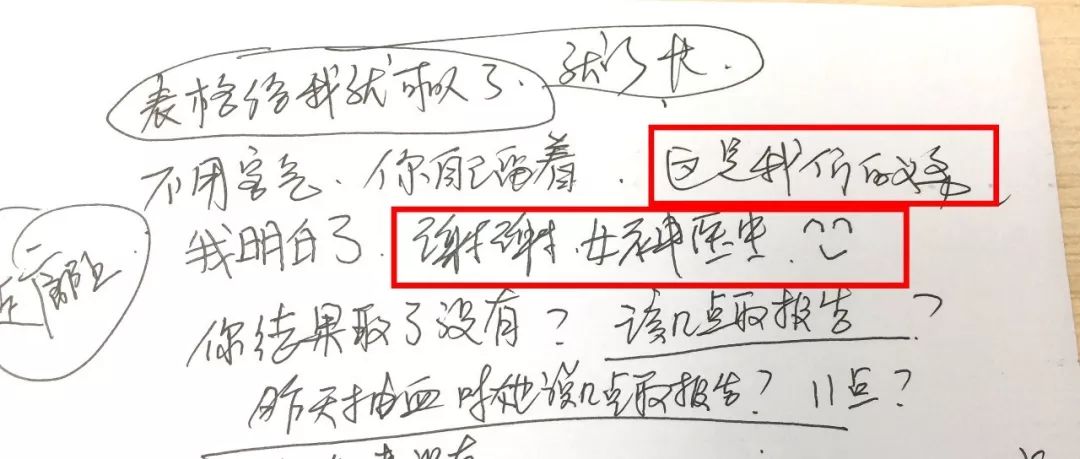 表格给我就可以了. 就行
不用客气. 你自己留着. 这是我们的义务
我明白了. 谢谢女神医生.
你结果取了没有? 该几点取报告?
昨天抽血时他说几点取报告? 11点?